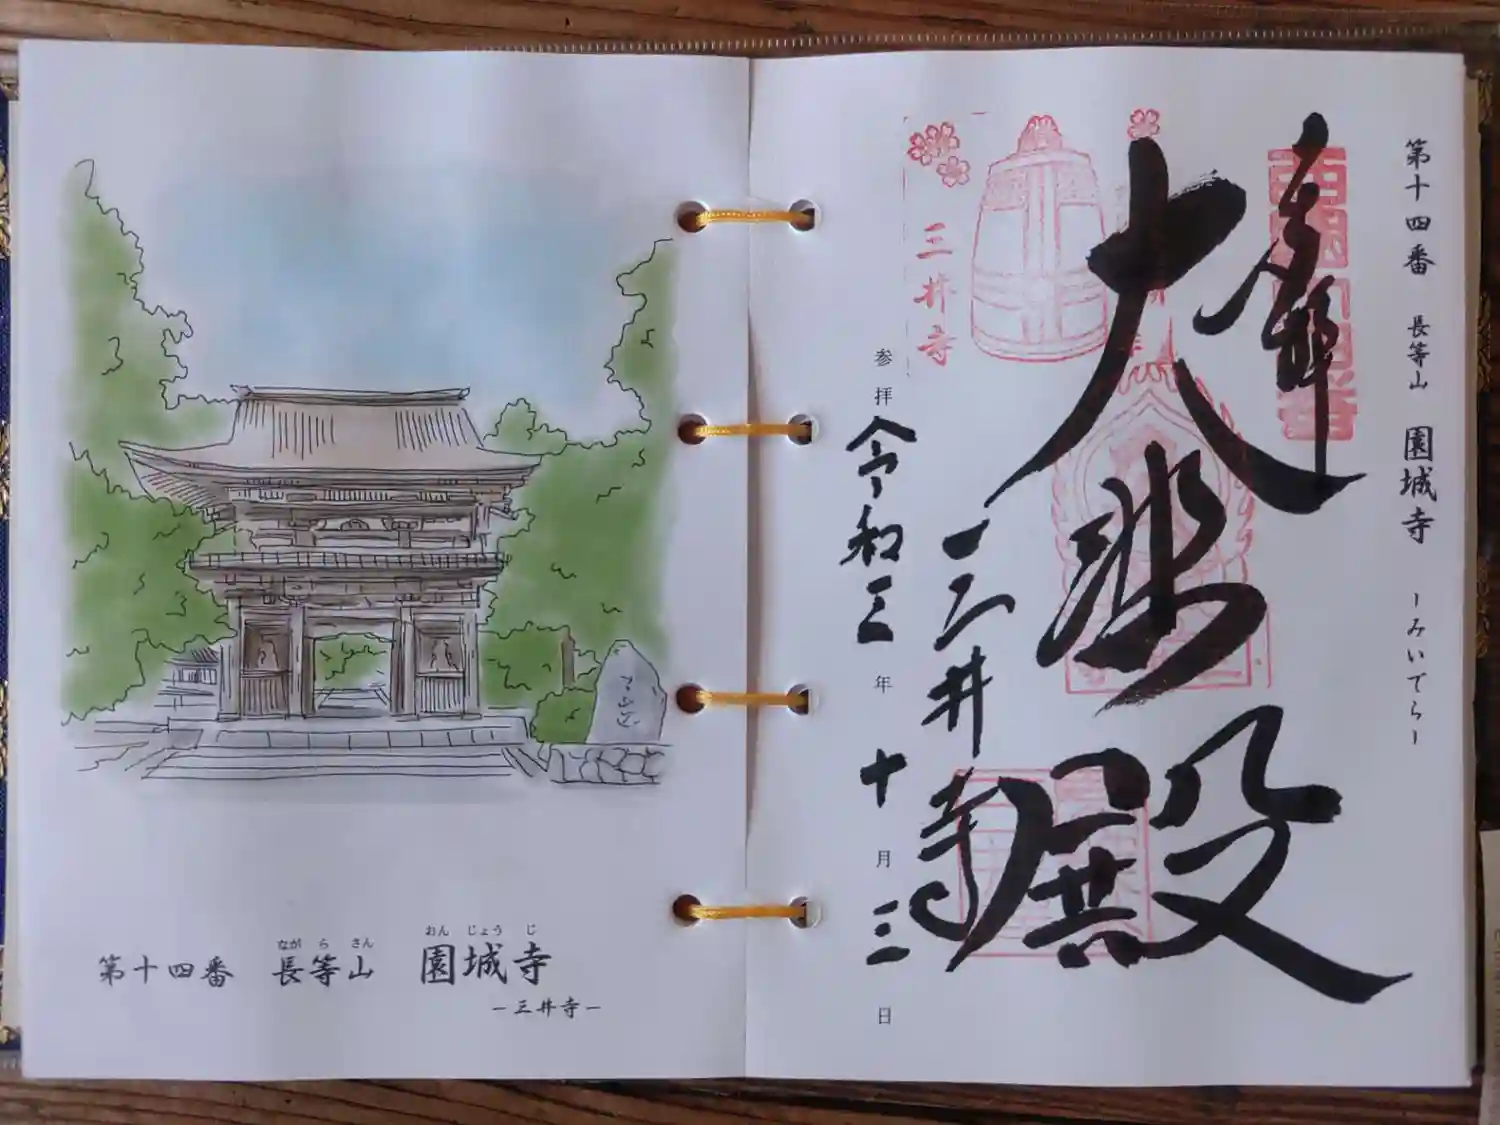 第十四番 長等山 園城寺 ーみいでらー
奉拝
大悲殿
三井寺
参拝 令和三年十月三日
三井寺
西国十四番
第十四番 長等山 園城寺
ながらさん おんじょうじ
ー三井寺ー